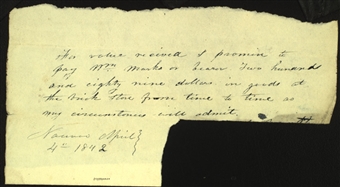 For value received I promise to
pay Wm Marks or bearer Two hundred
and eighty nine dollars in goods at
the brick store from time to time as
my circumstances will admit
Nauvoo April
4th 1842